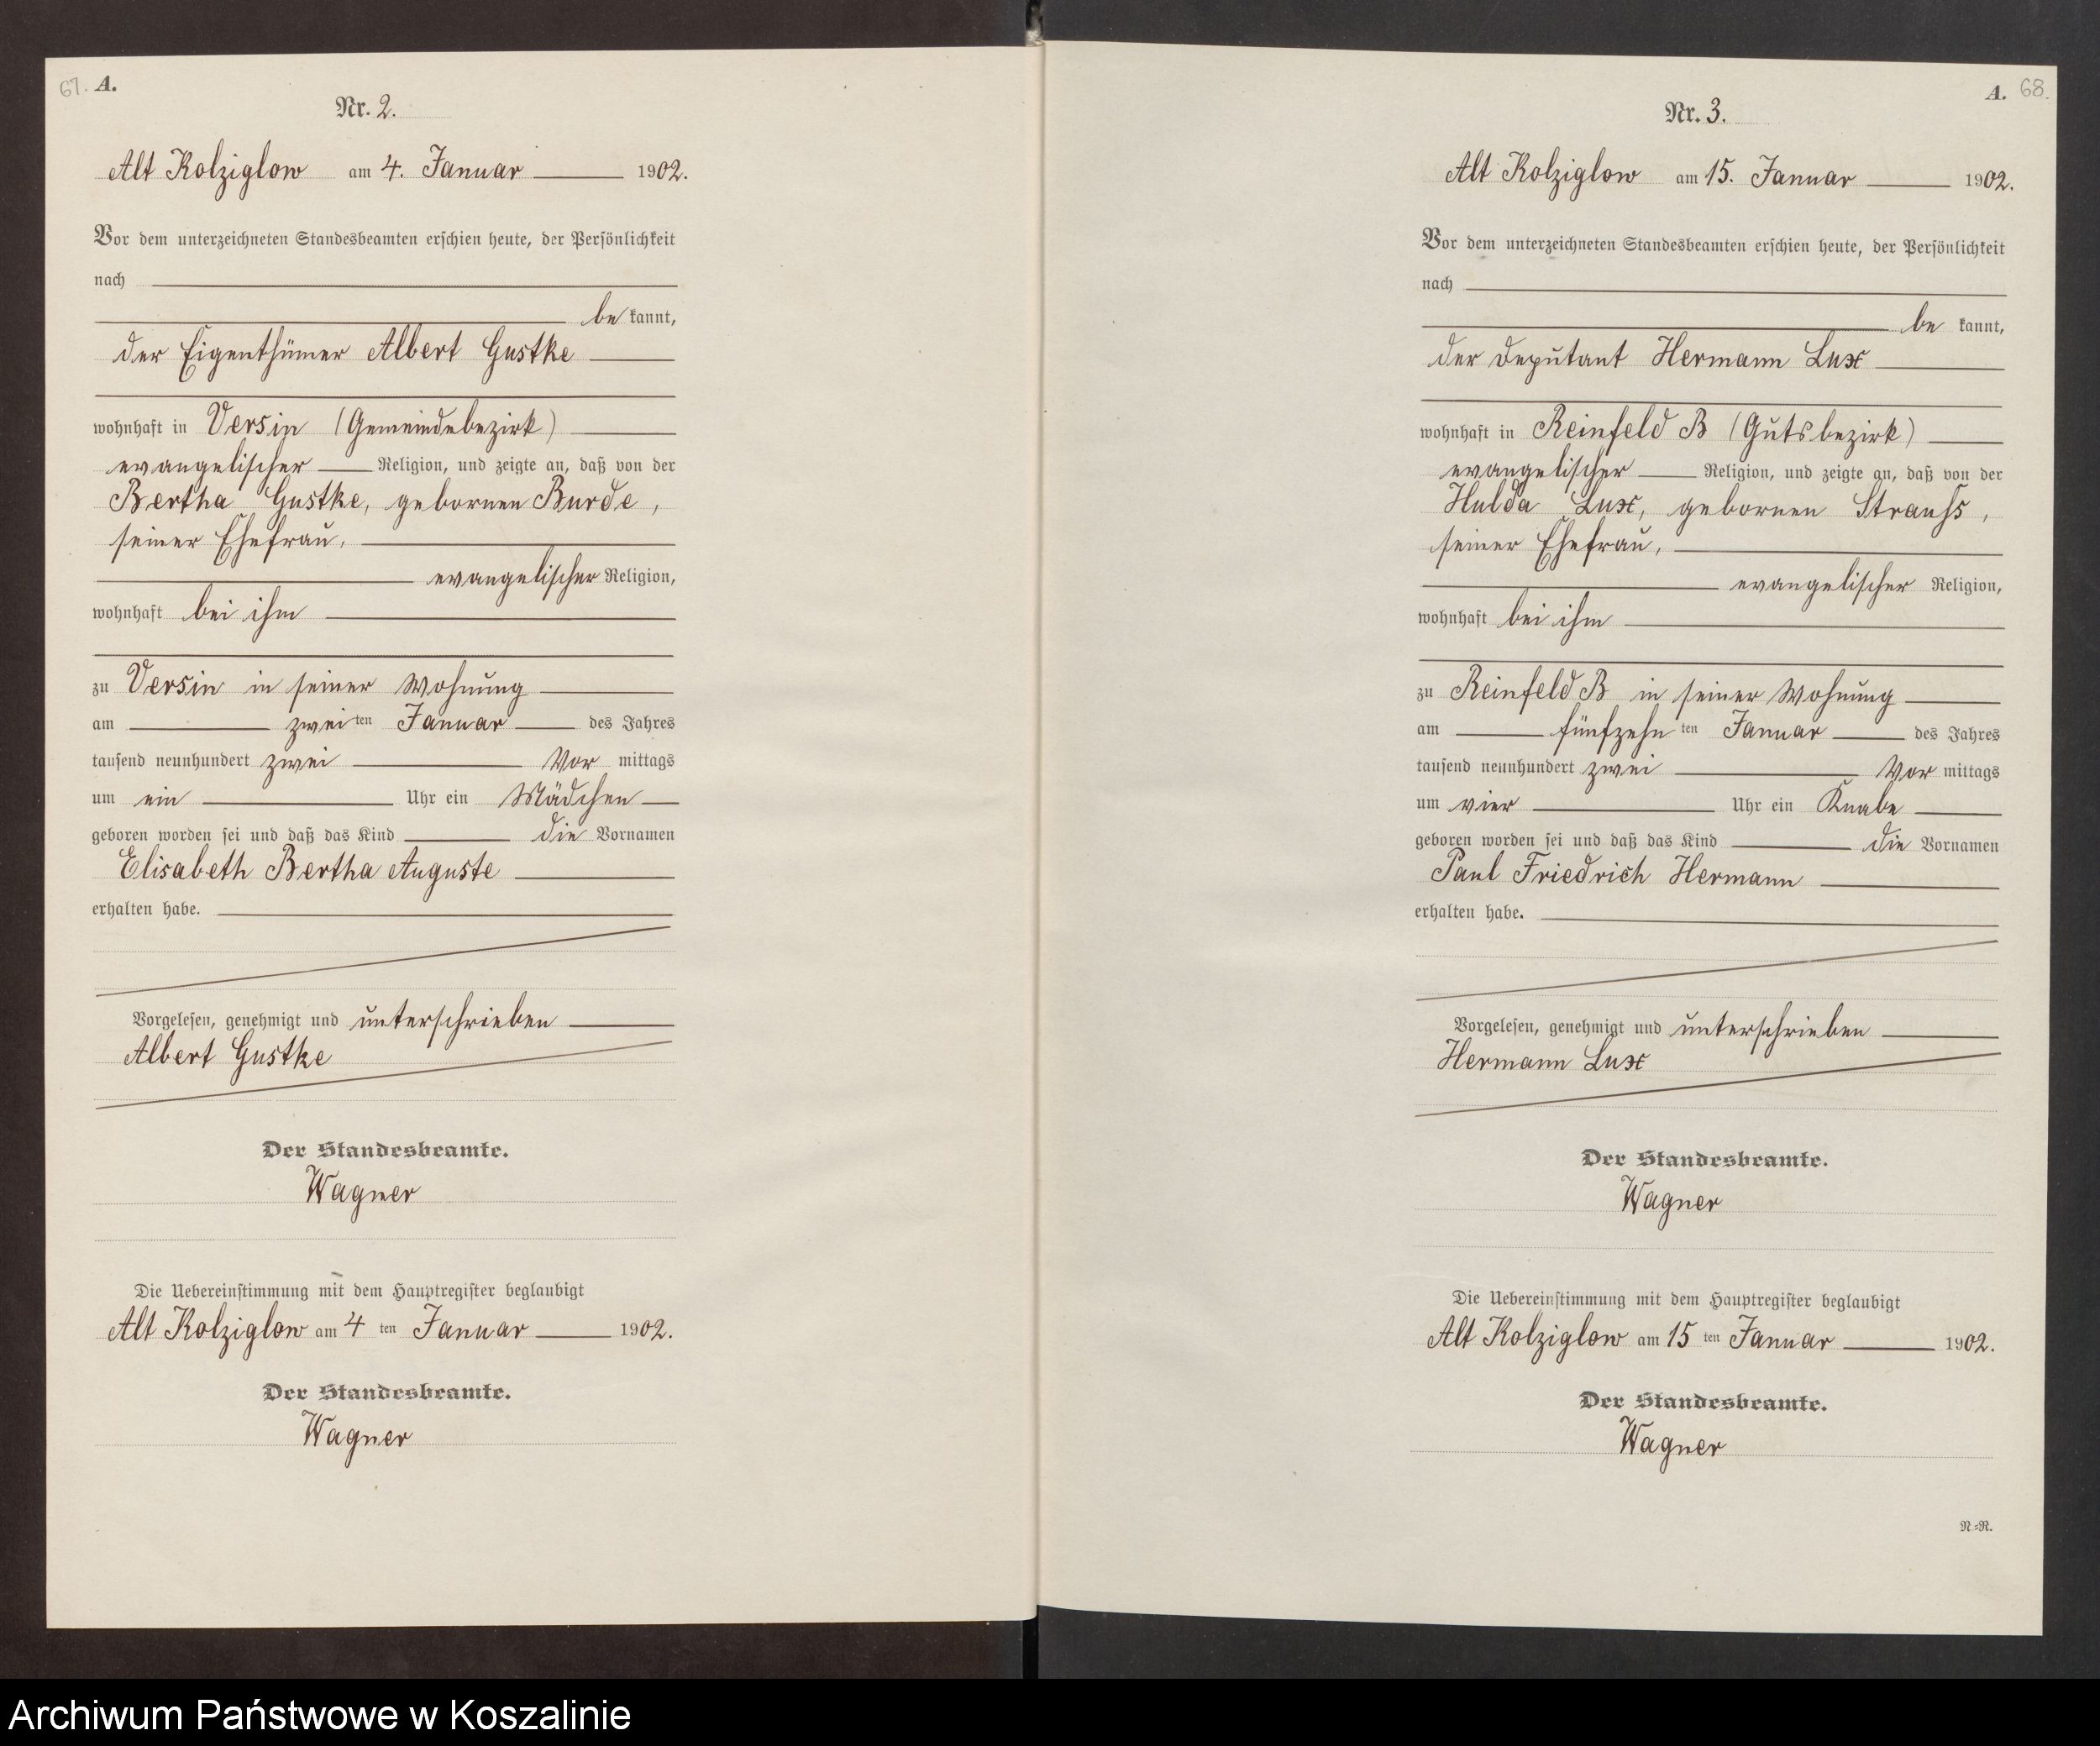 67. A.
Nr. 2.
Alt Kolziglow am 4. Januar 1902.
Vor dem unterzeichneten Standesbeamten erschien heute, der Persönlichkeit
nach
bekannt,
der Eigenthümer Albert Gustke
wohnhaft in Versin (Gemeindebezirk)
evangelischer Religion, und zeigte an, daß von der
Bertha Gustke, gebornen Burde,
seiner Ehefrau,
evangelischer Religion,
wohnhaft bei ihm
zu Versin in seiner Wohnung
am zweiten Januar des Jahres
tausend neunhundert zwei Vor mittags
um ein Uhr ein Mädchen
geboren worden sei und daß das Kind die Vornamen
Elisabeth Bertha Auguste
erhalten habe.
Vorgelesen, genehmigt und unterschrieben
Albert Gustke
Der Standesbeamte.
Wagner
Die Uebereinstimmung mit dem Hauptregister beglaubigt
Alt Kolziglow am 4 ten Januar 1902.
Der Standesbeamte.
Wagner
A. 68.
Nr. 3.
Alt Kolziglow am 15. Januar 1902.
Vor dem unterzeichneten Standesbeamten erschien heute, der Persönlichkeit
nach
be kannt,
der Deputant Hermann Lux
wohnhaft in Reinfeld B (Gutsbezirk)
evangelischer Religion, und zeigte an, daß von der
Hulda Lux, gebornen Strauß,
seiner Ehefrau,
evangelischer Religion,
wohnhaft bei ihm
zu Reinfeld B in seiner Wohnung
am fünfzehn ten Januar des Jahres
tausend neunhundert zwei Vor mittags
um vier Uhr ein Knabe
geboren worden sei und daß das Kind die Vornamen
Paul Friedrich Hermann
erhalten habe.
Vorgelesen, genehmigt und unterschrieben
Hermann Lux
Der Standesbeamte.
Wagner
Die Uebereinstimmung mit dem Hauptregister beglaubigt
Alt Kolziglow am 15 ten Januar 1902.
Der Standesbeamte.
Wagner
N=R.
Archiwum Państwowe w Koszalinie